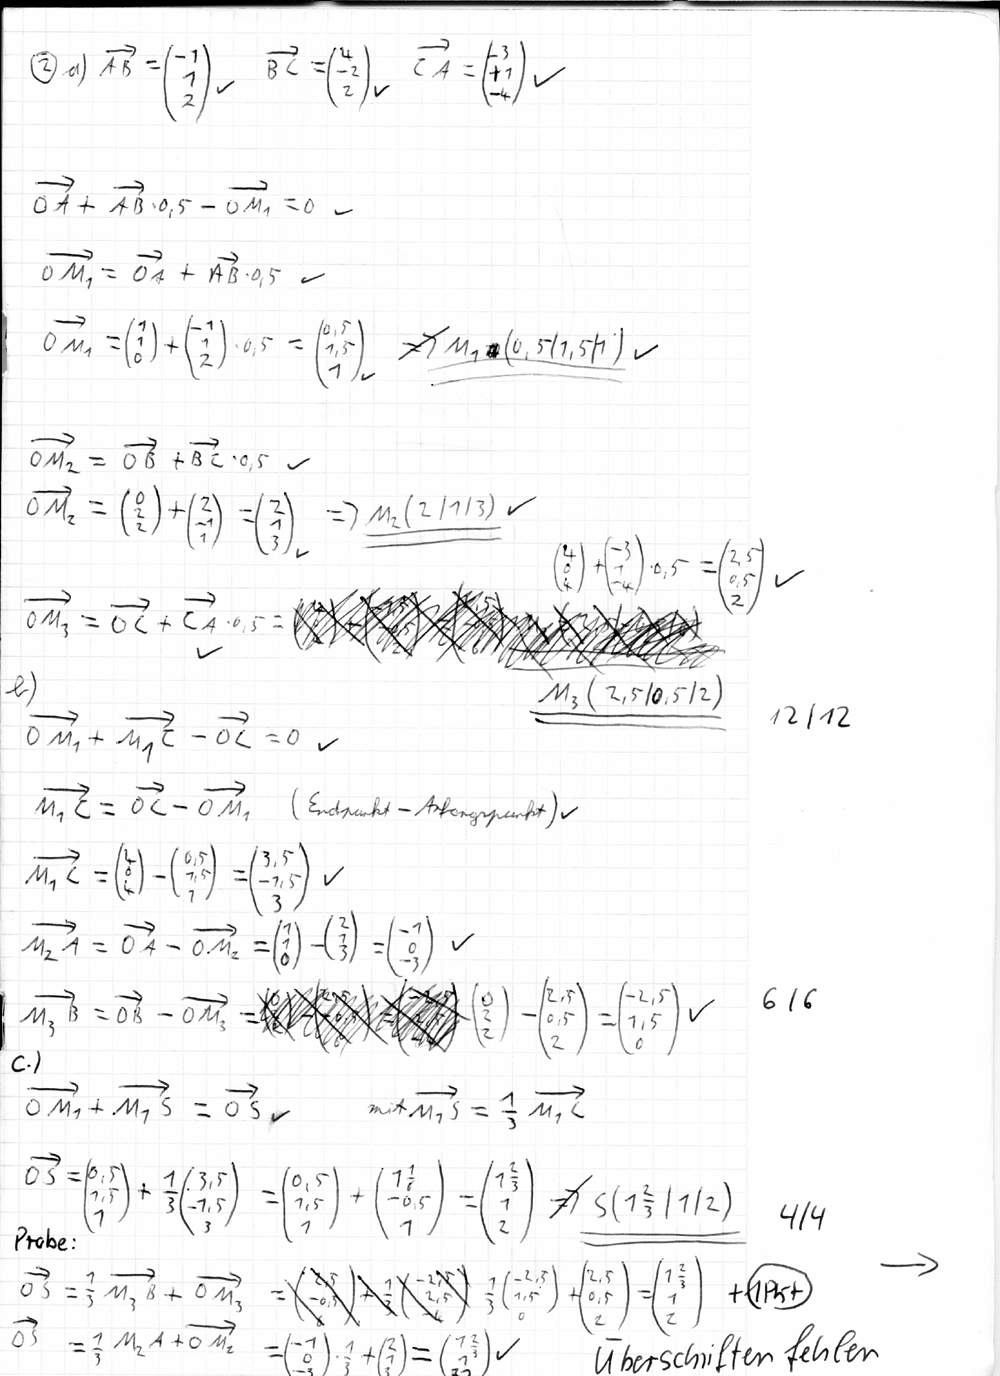 ② a) AB = (-1 1 2) ✓ BC = (4 -2 2) ✓ CA = (-3 +1 -4) ✓
OA + AB · 0,5 - OM₁ = 0 ✓
OM₁ = OA + AB · 0,5 ✓
OM₁ = (1 1 0) + (-1 1 2) · 0,5 = (0,5 1,5 1) ✓ => M₁ (0,5/1,5/1) ✓
OM₂ = OB + BC · 0,5 ✓
OM₂ = (0 2 2) + (2 -1 1) = (2 1 3) ✓ => M₂ (2/1/3) ✓
(4 0 4) + (-3 1 -4) · 0,5 = (2,5 0,5 2) ✓
OM₃ = OC + CA · 0,5 = ✓
M₃ (2,5/0,5/2)
12/12
b)
OM₁ + M₁C - OC = 0 ✓
M₁C = OC - OM₁ (Endpunkt - Anfangspunkt) ✓
M₁C = (4 0 4) - (0,5 1,5 1) = (3,5 -1,5 3) ✓
M₂A = OA - OM₂ = (1 1 0) - (2 1 3) = (-1 0 -3) ✓
M₃B = OB - OM₃ = (0 2 2) - (2,5 0,5 2) = (-2,5 1,5 0) ✓ 6/6
c.)
OM₁ + M₁S = OS ✓ mit M₁S = 1/3 M₁C
OS = (0,5 1,5 1) + 1/3 (3,5 -1,5 3) = (0,5 1,5 1) + (1 1/6 -0,5 1) = (1 2/3 1 2) => S (1 2/3 / 1 / 2) 4/4
Probe:
OS = 1/3 M₃B + OM₃ = 1/3 (-2,5 1,5 0) + (2,5 0,5 2) = (1 2/3 1 2) + 1Pkt →
OS = 1/3 M₂A + OM₂ = (-1 0 -3) · 1/3 + (2 1 3) = (1 2/3 1 ✓
Überschriften fehlen